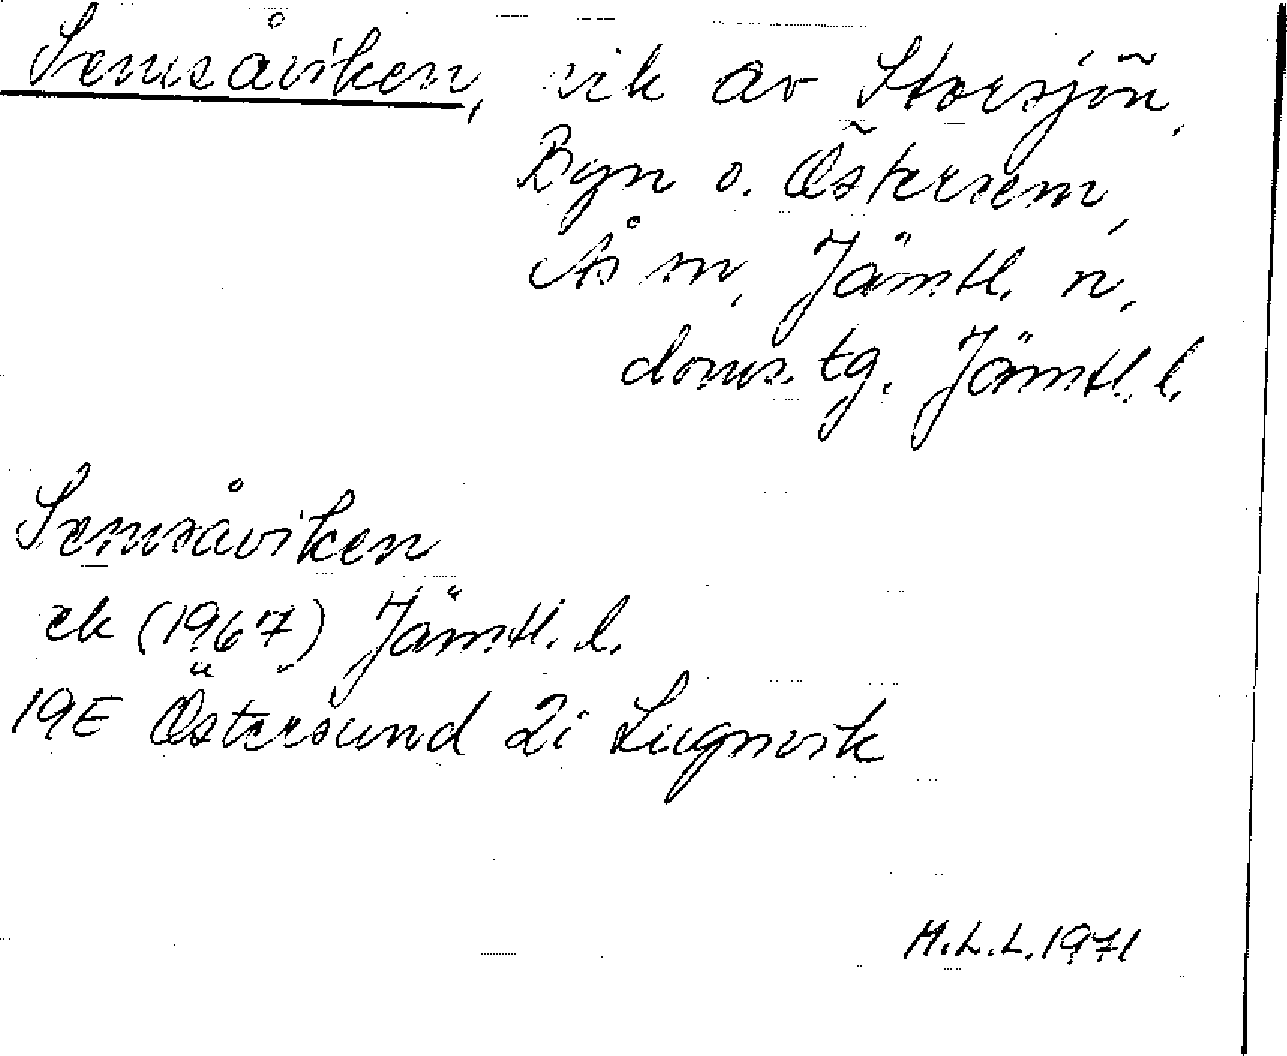 Semsåviken, vik av Storsjön,
Byn o. Östersem,
Ås sn, Jämtl. n.
doms. tg. Jämtl. l.
Semsåviken
ek (1967) Jämtl. l.
19E Östersund 2i Lugnvik
H.L.L. 1971